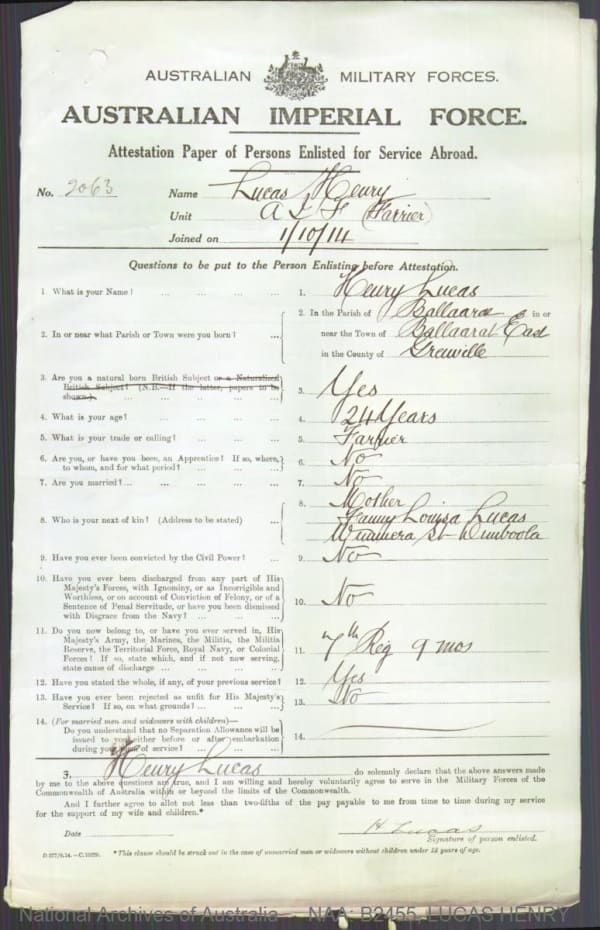 AUSTRALIAN MILITARY FORCES.
AUSTRALIAN IMPERIAL FORCE.
Attestation Paper of Persons Enlisted for Service Abroad.
No. 2063 Name Lucas Henry
Unit A I F (Farrier)
Joined on 1/10/14
Questions to be put to the Person Enlisting before Attestation.
1. What is your Name? ... ... ... ... 1. Henry Lucas
2. In or near what Parish or Town were you born? ... 2. In the Parish of Ballaarat in or
near the Town of Ballaarat East
in the County of Grenville
3. Are you a natural born British Subject or a Naturalized
British Subject? (N.B.—If the latter, papers to be
shown.) ... ... ... ... 3. Yes
4. What is your age? ... ... ... ... 4. 24 Years
5. What is your trade or calling? ... ... ... 5. Farrier
6. Are you, or have you been, an Apprentice? If so, where,
to whom, and for what period? ... ... ... 6. No
7. Are you married? ... ... ... ... 7. No
8. Who is your next of kin? (Address to be stated) ... 8. Mother
Fanny Louisa Lucas
Wimmera St Dimboola
9. Have you ever been convicted by the Civil Power? ... 9. No
10. Have you ever been discharged from any part of His
Majesty's Forces, with Ignominy, or as Incorrigible and
Worthless, or on account of Conviction of Felony, or of a
Sentence of Penal Servitude, or have you been dismissed
with Disgrace from the Navy? ... ... ... 10. No
11. Do you now belong to, or have you ever served in, His
Majesty's Army, the Marines, the Militia, the Militia
Reserve, the Territorial Force, Royal Navy, or Colonial
Forces? If so, state which, and if not now serving,
state cause of discharge ... ... ... 11. 7th Reg 9 mos
12. Have you stated the whole, if any, of your previous service? 12. Yes
13. Have you ever been rejected as unfit for His Majesty's
Service? If so, on what grounds? ... ... ... 13. No
14. (For married men and widowers with children)—
Do you understand that no Separation Allowance will be
issued to you either before or after embarkation
during your term of service? ... ... ... 14.
I, Henry Lucas do solemnly declare that the above answers made
by me to the above questions are true, and I am willing and hereby voluntarily agree to serve in the Military Forces of the
Commonwealth of Australia within or beyond the limits of the Commonwealth.
And I further agree to allot not less than two-fifths of the pay payable to me from time to time during my service
for the support of my wife and children.*
Date H Lucas
Signature of person enlisted.
D.577/9.14.—C.10979. *This clause should be struck out in the case of unmarried men or widowers without children under 18 years of age.
National Archives of Australia NAA: B2455, LUCAS HENRY